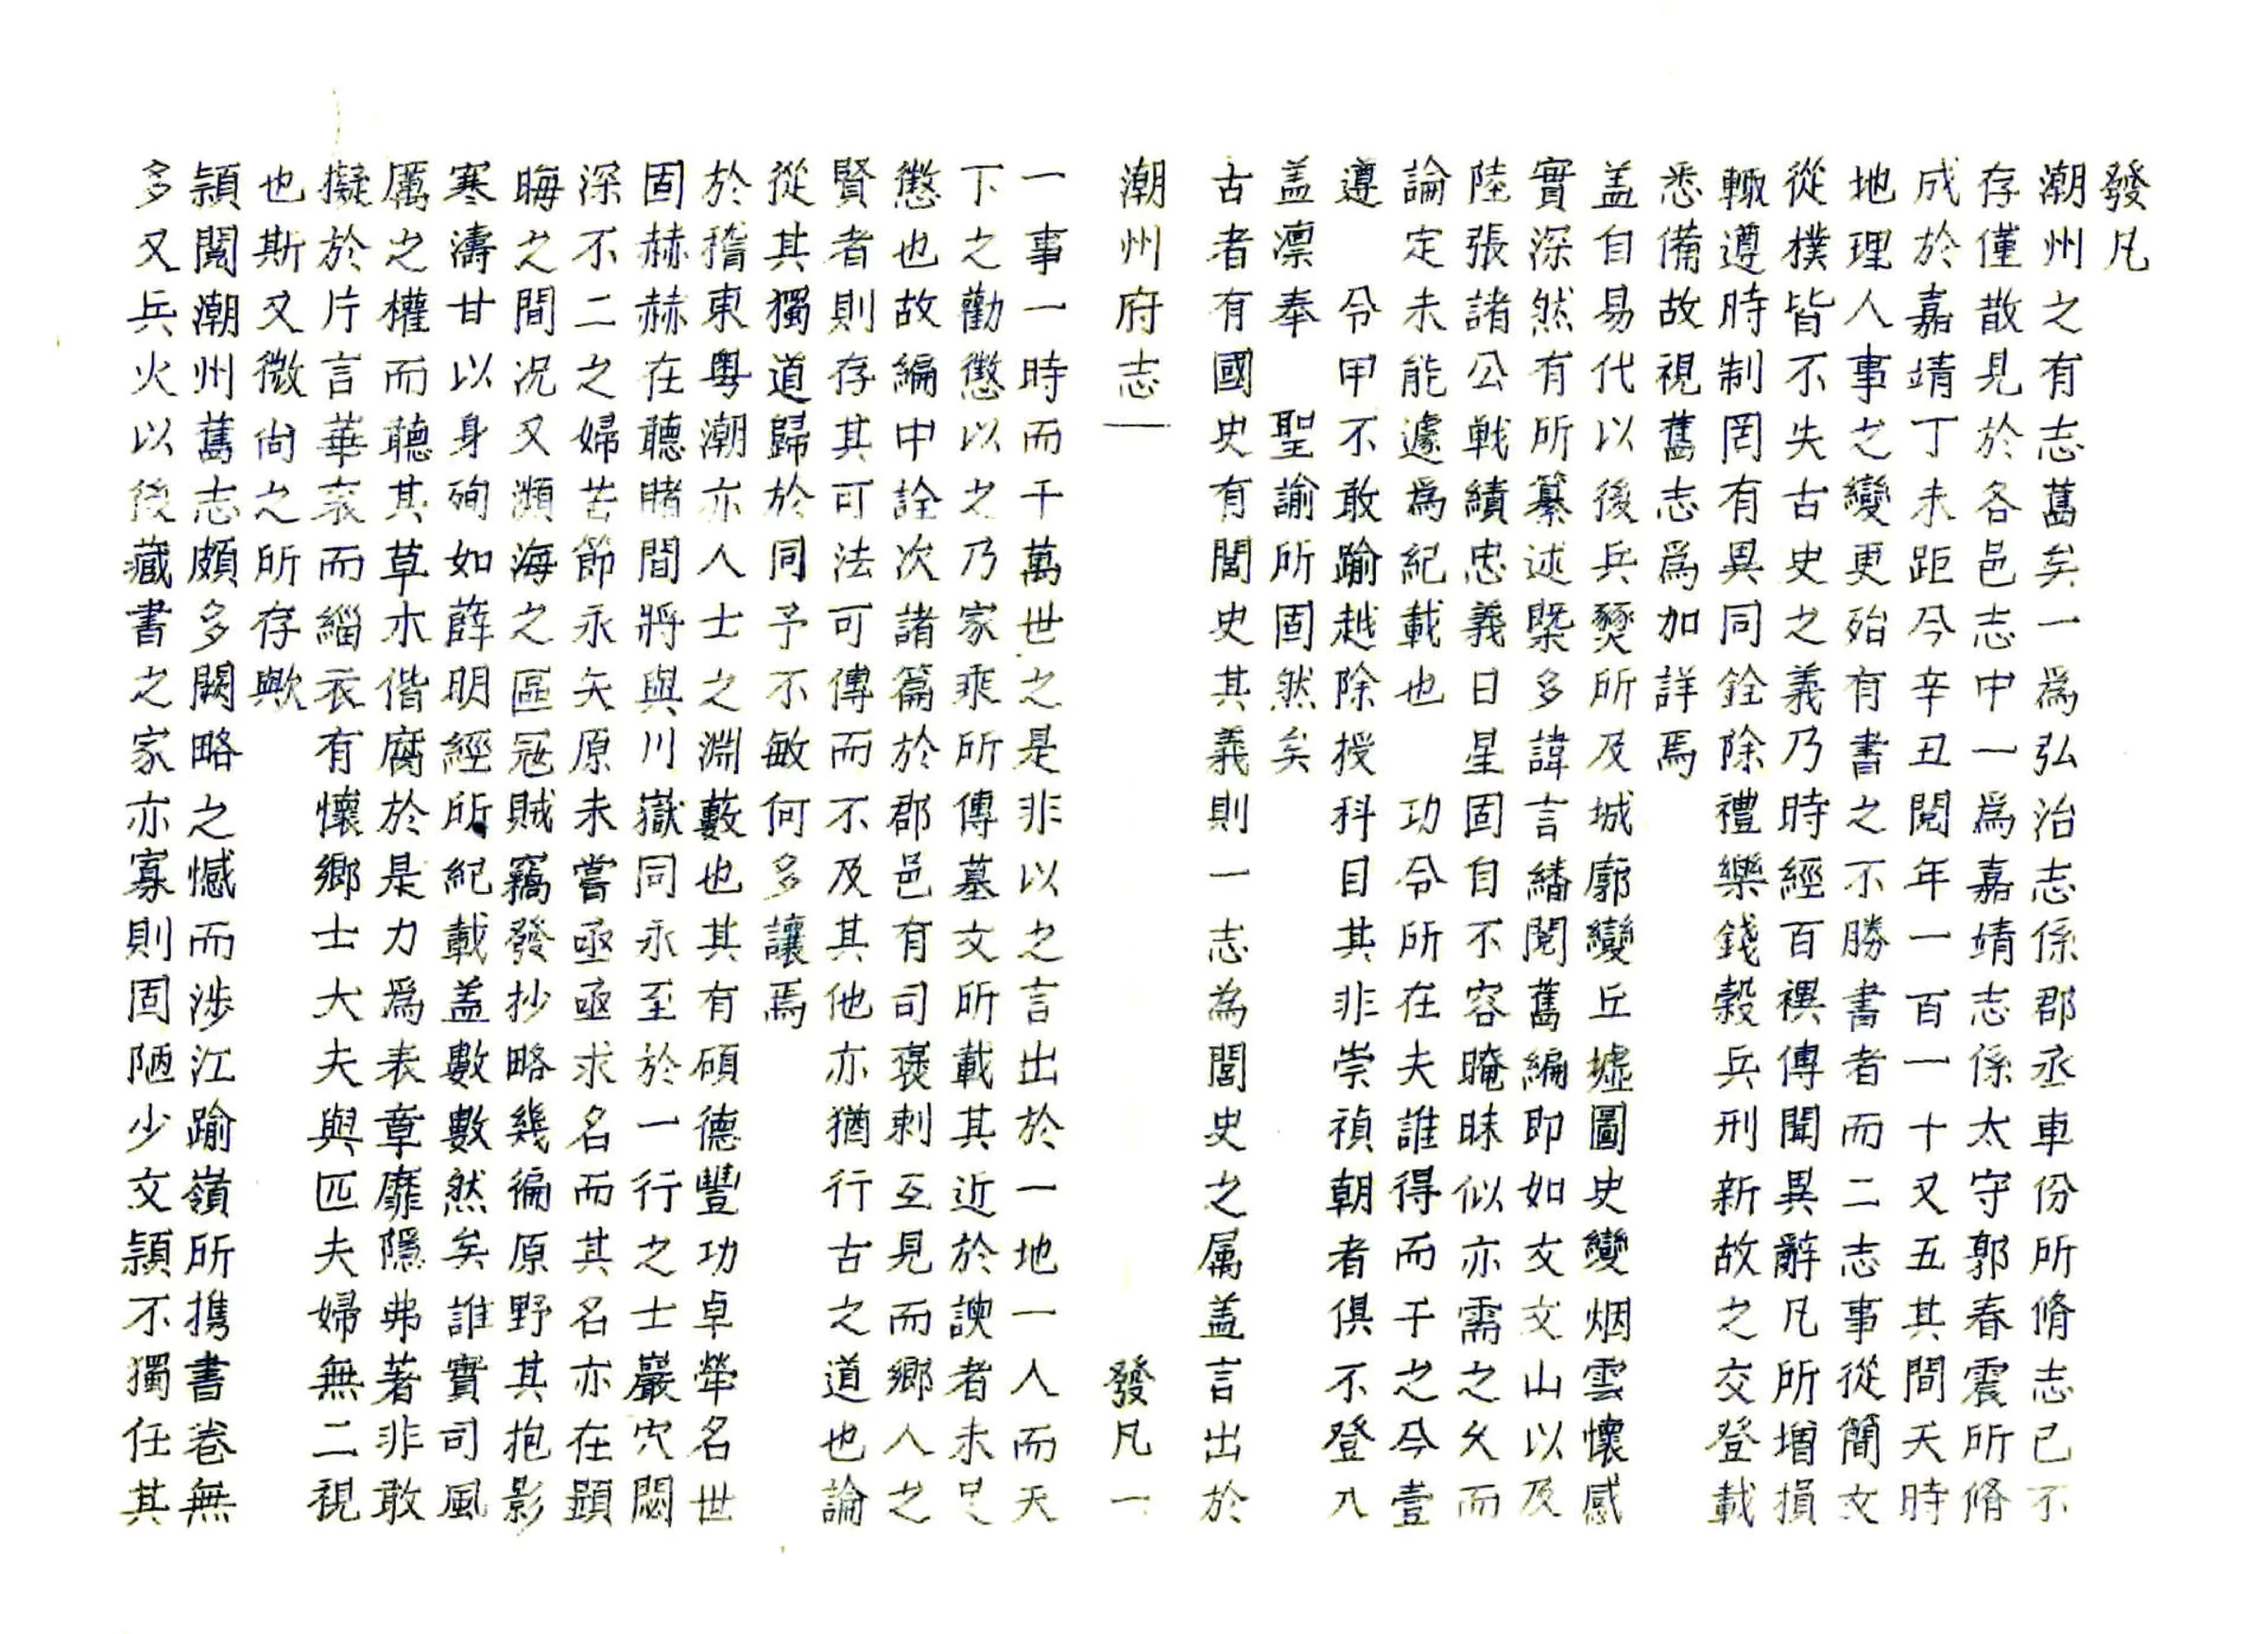 發凡
潮州之有志舊矣一爲弘治志係郡丞車份所脩志已不
存僅散見於各邑志中一爲嘉靖志係太守郭春震所脩
成於嘉靖丁未距今辛丑閱年一百一十又五其間天時
地理人事之變更殆有書之不勝書者而二志事從簡文
從樸皆不失古史之義乃時經百禩傳聞異辭凡所增損
輙遵時制罔有異同銓除禮樂錢穀兵刑新故之交登載
悉備故視舊志爲加詳焉
盖自易代以後兵燹所及城廓變丘墟圖史變烟雲懷感
實深然有所纂述槩多諱言繙閱舊編即如文文山以及
陸張諸公戦績忠義日星固自不容晻昧似亦需之久而
論定未能遽爲紀載也 功令所在夫誰得而干之今壹
遵 令甲不敢踰越除授科目其非崇禎朝者俱不登入
盖凛奉 聖諭所固然矣
古者有國史有閭史其義則一志為閭史之属盖言出於
潮州府志 發凡一
一事一時而千萬世之是非以之言出於一地一人而天
下之勸懲以之乃家乘所傳墓文所載其近於諛者未足
懲也故編中詮次諸篇於郡邑有司褒刺互見而鄉人之
賢者則存其可法可傳而不及其他亦猶行古之道也論
從其獨道歸於同予不敏何多讓焉
於揩東粵潮亦人士之淵藪也其有碩德豐功卓犖名世
固赫赫在聽睹間將與川嶽同永至於一行之士巖穴閟
深不二之婦苦節永矢原未嘗亟亟求名而其名亦在顕
晦之間况又瀕海之區冦賊竊發抄略幾徧原野其抱影
寒濤甘以身殉如薛明經所紀載盖數數然矣誰實司風
厲之權而聽其草木偕腐於是力爲表章靡隱弗著非敢
擬於片言華衮而緇衣有懷鄉士大夫與匹夫婦無二視
也斯又微尙之所存歟
頴閱潮州舊志頗多闕略之憾而涉江踰嶺所携書卷無
多又兵火以後藏書之家亦寡則固陋少文頴不獨任其